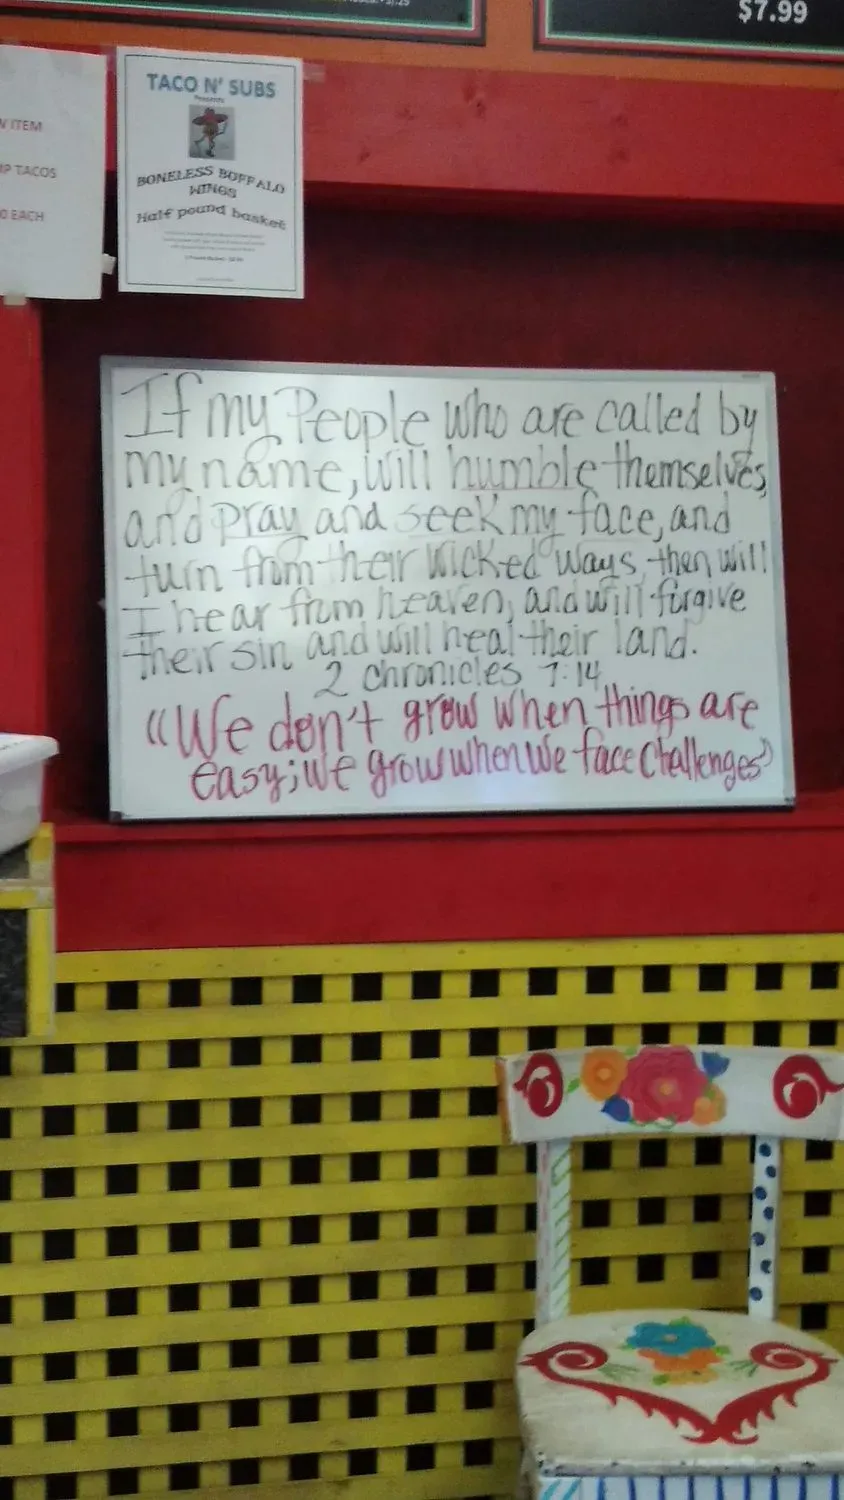 $7.99
W ITEM
MP TACOS
0 EACH
TACO N' SUBS
Presents
BONELESS BUFFALO
WINGS
Half pound basket
If my People who are called by
my name, will humble themselves,
and pray and seek my face, and
turn from their wicked ways, then will
I hear from heaven, and will forgive
their sin and will heal their land.
2 chronicles 7:14
"We don't grow when things are
easy; we grow when we face challenges"